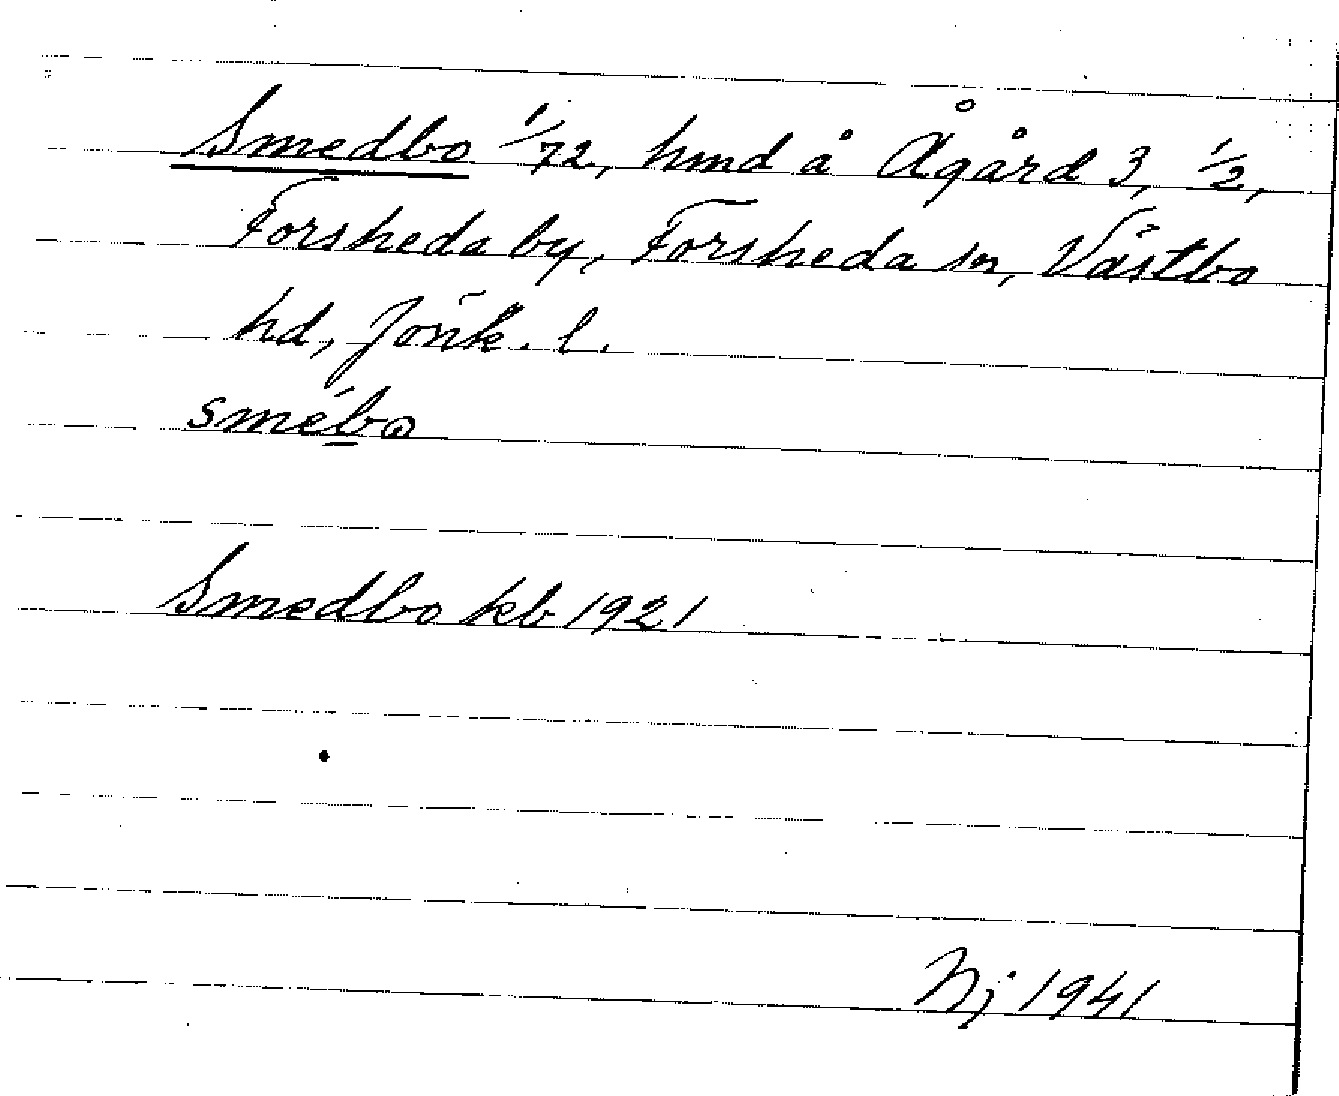 Smedbo 1/72, hmd å Ågård 3, 1/2,
Forsheda by, Forsheda sn, Västbo
hd, Jönk. l.
smébo
Smedbo kb 1921
Nj 1941